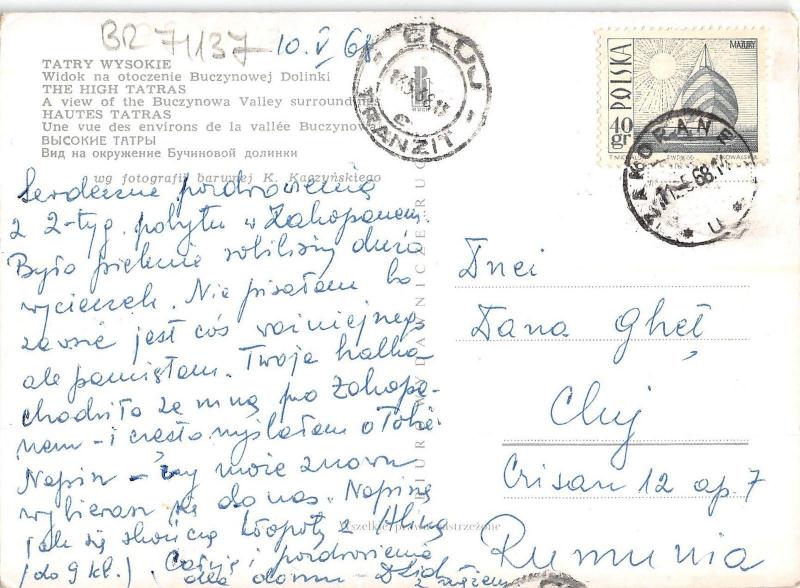 BR 71137
10.V 68
TATRY WYSOKIE
Widok na otoczenie Buczynowej Dolinki
THE HIGH TATRAS
A view of the Buczynowa Valley surroundings
HAUTES TATRAS
Une vue des environs de la vallée Buczynowa
ВЫСОКИЕ ТАТРЫ
Вид на окружение Бучиновой долинки
wg fotografii barwnej K. Kaczyńskiego
Serdeczne pozdrowienia
z 2-tyg. pobytu w Zakopanem.
Było pięknie robiliśmy dużo
wycieczek. Nie pisałam bo
zawsze jest coś ważniejszego
ale pamiętam. Twoja halka
chodziła ze mną po Zakopa-
nem - i często myślałam o Tobie.
Napisz - czy może znowu
wybierasz się do nas. Napiszę
jak się skończą kłopoty z Aliną
(do 9 kl.). Całuję i pozdrowienia
dla domu
CLUJ
TRANZIT
RUCH
BIURO WYDAWNICZE RUCH
Wszelkie prawa zastrzeżone
MAZURY
POLSKA
40 gr
ZAKOPANE
11.-5.68
Dnei
Dana Gheț
Cluj
Crisan 12 ap. 7
Rumunia